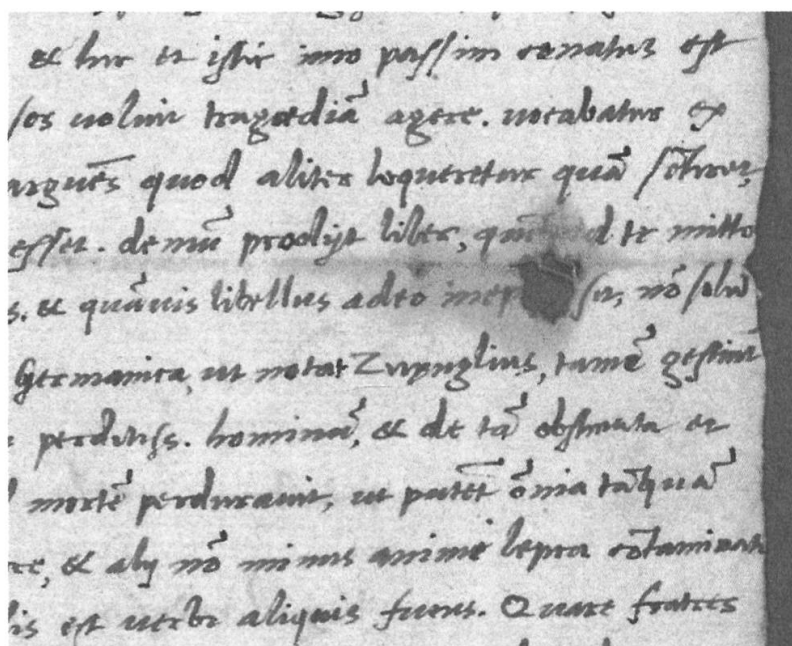 & hic et istic imo passim conatus est
sos uoluit tragœdiā agere. uocabatur ex
arguēs quod aliter loqueretur quā sētiret,
esset. demū prodijt liber, ad te mitto
s. & quāuis libellus adeo sit, nō solū
Germanica, ut notat Zuynglius, tamē gestiūt
perditiss. hominū, & de tā obstinata et
mortē perdurauit, ut putēt ōnia tāquā
re, & alij nō minus animi lepra cōtaminati
est uerbi aliquis fucus. Quare fratres